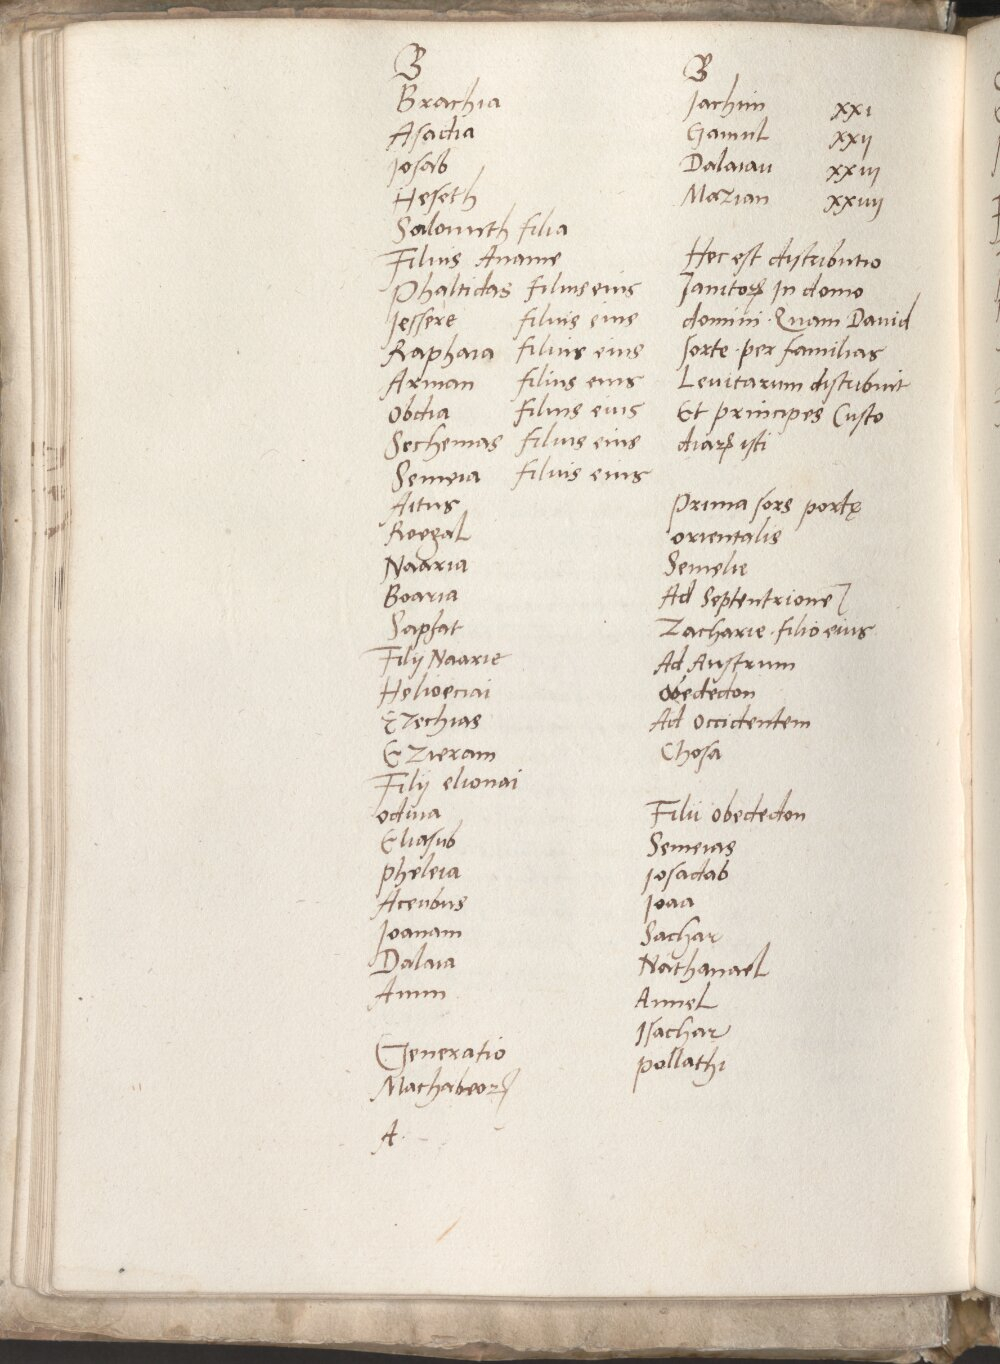 B
Brachia
Asadia
Josab
Heseth
Salomith filia
Filius Aname
Phaltidas filius eius
Jessere filius eius
Raphaia filius eius
Arman filius eius
Obdia filius eius
Sechemas filius eius
Semeia filius eius
Aitus
Roegal
Naaria
Boaria
Sapfat
Filij Naarie
Helioeciai
Ezechias
Ezieram
Filij elionai
oduia
Eliasub
pheleia
Aceubus
Joanam
Dalaia
Anim
Generatio
Machabeoꝝ
A
B
Jachim xxi
Gamul xxij
Dalaiau xxiij
Mazian xxiiij
Hec est distributio
Janitoꝝ In domo
domini. Quam Dauid
sorte per familias
Leuitarum distribuit
Et principes Custo
diaꝝ isti
Prima sors portę
orientalis
Semelie
Ad Septentrione
Zacharie. filio eius
Ad Austrum
obededon
Ad Occidentem
Chosa
Filii obededon
Semeias
Josadab
Joaa
Sachar
Nathanael
Amiel
Isachar
pollathi